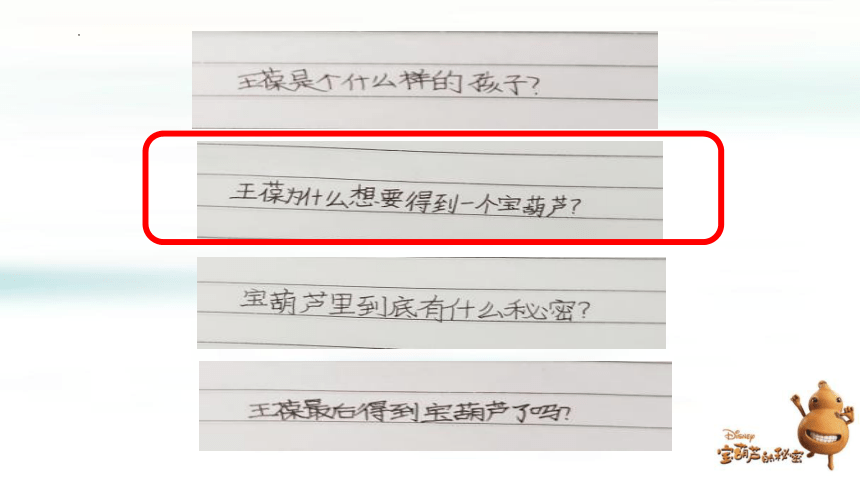 王葆是个什么样的孩子?
王葆为什么想要得到一个宝葫芦?
宝葫芦里到底有什么秘密?
王葆最后得到宝葫芦了吗?
Disney
宝葫芦的秘密